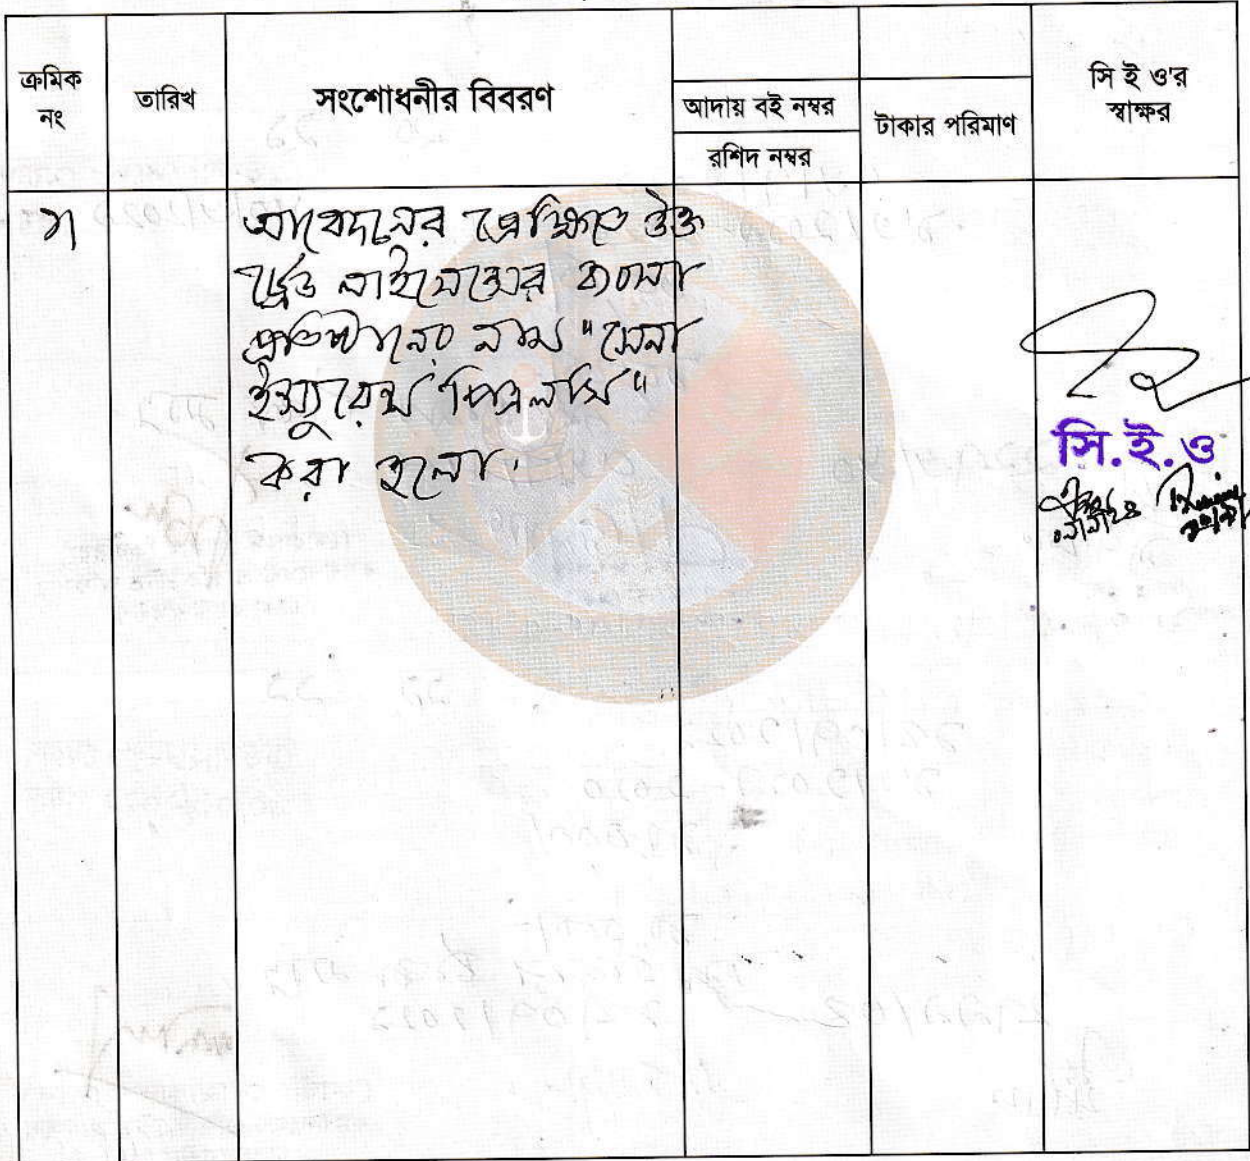 ক্রমিক নং
তারিখ
সংশোধনীর বিবরণ
আদায় বই নম্বর
রশিদ নম্বর
টাকার পরিমাণ
সি ই ও'র
স্বাক্ষর
১।
আবেদনের প্রেক্ষিতে উক্ত
ট্রেড লাইসেন্সের ব্যবসা
প্রতিষ্ঠানের নাম "সেনা
ইন্স্যুরেন্স পিএলসি"
করা হলো।
সি.ই.ও